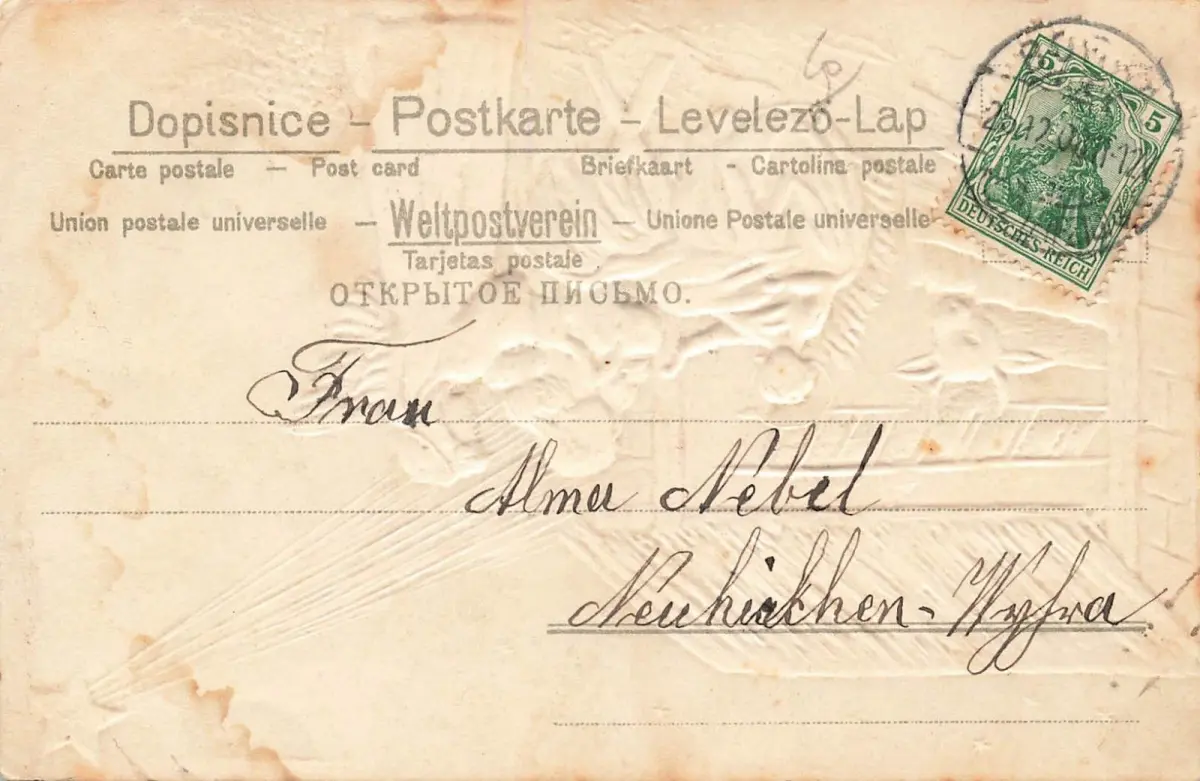 Dopisnice – Postkarte – Levelezö-Lap
Carte postale — Post card Briefkaart - Cartolina postale
Union postale universelle – Weltpostverein – Unione Postale universelle
Tarjetas postale
ОТКРЫТОЕ ПИСЬМО.
5 5
DEUTSCHES REICH
Frau
Alma Nebel
Neukirchen-Wyhra